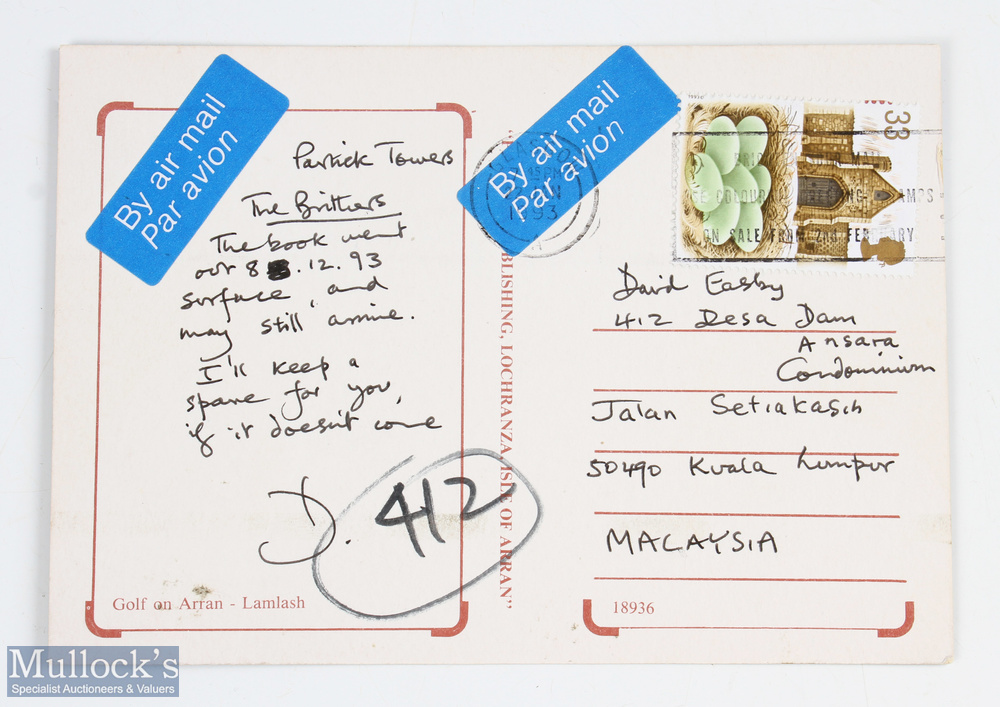 By air mail
Par avion
Partick Towers
The Brithers
The book went
out 8 .12.93
surface, and
may still arrive.
I'll keep a
spare for you,
if it doesn't come
D.
412
Golf on Arran - Lamlash
By air mail
Par avion
1993
33
COLOUR
ON SALE FROM 2nd FEBRUARY
BLISHING, LOCHRANZA, ISLE OF ARRAN"
David Easby
412 Desa Dam
Ansara
Condominium
Jalan Setiakasih
50490 Kuala Lumpur
MALAYSIA
18936
Mullock's
Specialist Auctioneers & Valuers